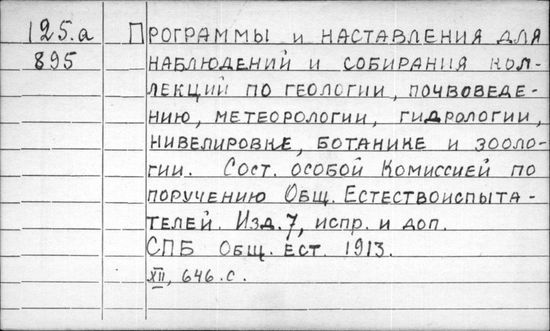 125.а Программы и наставления для
895 наблюдений и собирания кол-
лекций по геологии, почвоведе-
нию, метеорологии, гидрологии,
нивелировке, ботанике и зооло-
гии. Сост. особой Комиссией по
поручению Общ. Естествоиспыта-
телей. Изд. 7, испр. и доп.
СПБ Общ. ест. 1913.
XII, 646.с.